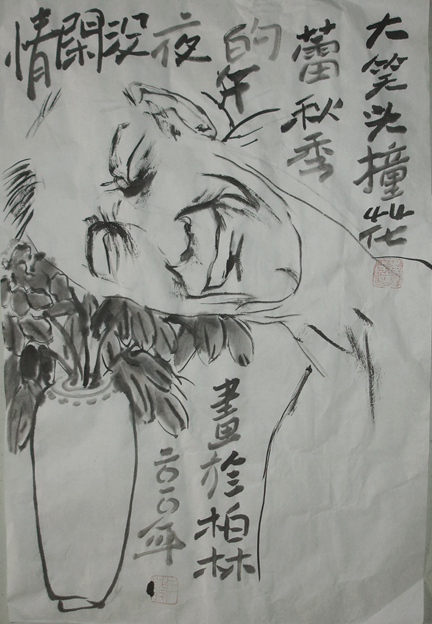 大笑头撞花
蕾秋季
的午
夜没閑情
畫於柏林
年